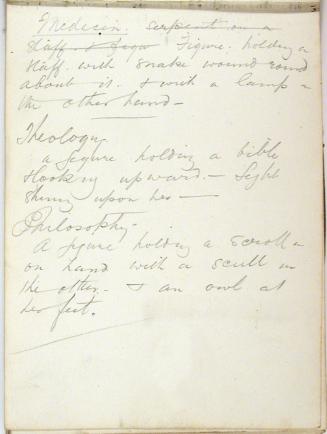 Medecin. serpent on a
staff & figur Figure. holding a
staff. with snake wound round
about it. & with a lamp -
the other hand -
Theology.
a figure holding a bible
& looking upward - Light
shing upon her -
Philosophy.
A figure holding a scroll in
on hand with a scull in
the other. - & an owl at
her feet.